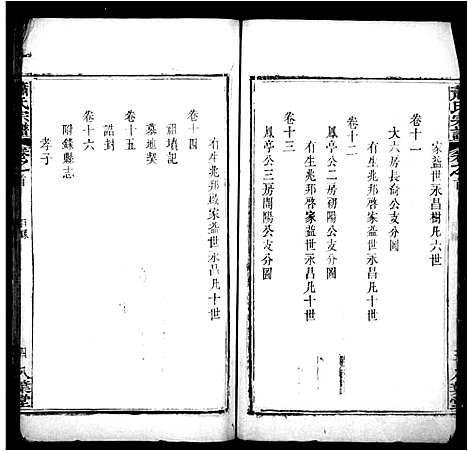 家益世永昌樹凡六世
卷十一
大六房長裔公支分圖
有生兆邦啓家益世永昌凡十世
卷十二
鳳亭公二房朝陽公支分圖
有生兆邦啓家益世永昌凡十世
卷十三
鳳亭公三房開陽公支分圖
有生兆邦啟家益世永昌凡十世
卷十四
祖墳記
墓地契
卷十五
誥封
卷十六
附錄縣志
孝子
蕭氏宗譜
卷之首
目錄
四
八葉堂